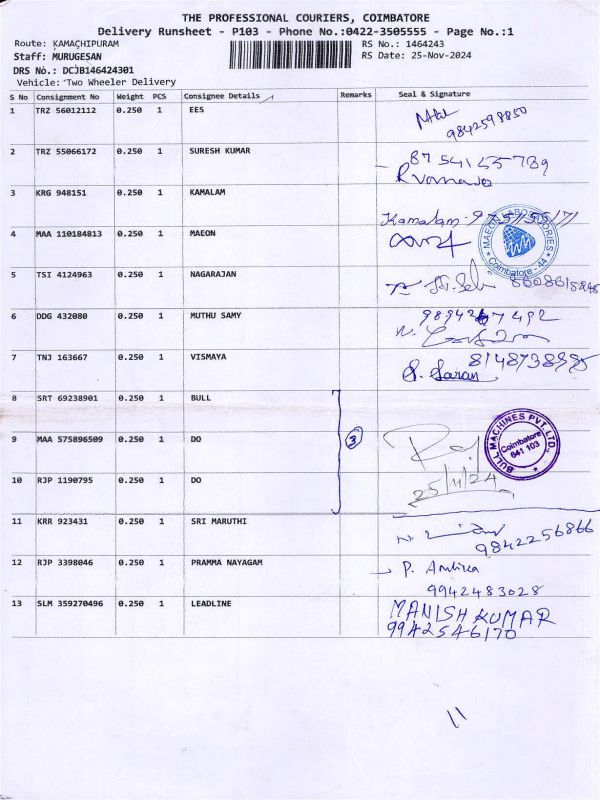 THE PROFESSIONAL COURIERS, COIMBATORE
Delivery Runsheet - P103 - Phone No.:0422-3505555 - Page No.:1
Route: KAMACHIPURAM
RS No.: 1464243
Staff: MURUGESAN
RS Date: 25-Nov-2024
DRS No.: DCJB146424301
Vehicle: Two Wheeler Delivery
S No Consignment No Weight PCS Consignee Details Remarks Seal & Signature
1 TRZ 56012112 0.250 1 EES
9842599850
2 TRZ 55066172 0.250 1 SURESH KUMAR 8754155789
3 KRG 948151 0.250 1 KAMALAM
Kamalam
4 MAA 110184813 0.250 1 MAEON
MAEON LABORATORIES
Coimbatore - 44
5 TSI 4124963 0.250 1 NAGARAJAN
6 DDG 432080 0.250 1 MUTHU SAMY
7 TNJ 163667 0.250 1 VISMAYA
S. Saran
8 SRT 69238901 0.250 1 BULL
9 MAA 575896509 0.250 1 DO 3
BULL MACHINES PVT. LTD.
Coimbatore
641 103
10 RJP 1190795 0.250 1 DO
25/11/24
11 KRR 923431 0.250 1 SRI MARUTHI
9842256866
12 RJP 3398046 0.250 1 PRAMMA NAYAGAM P. Ambika
9942483028
13 SLM 359270496 0.250 1 LEADLINE MANISH KUMAR
9942546170
11